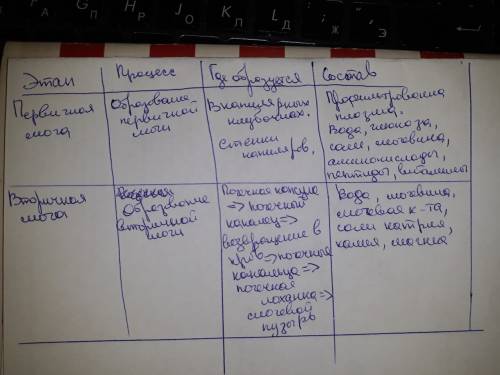 Этап Процесс Где образуется Состав
Первичная
моча
Образование
первичной
мочи
В капилярных
клубочках.
Стенки
капиляров.
Профильтрованная
плазма.
Вода, глюкоза,
соли, мочевина,
аминокислоды,
пептиды, витамины
Вторичная
моча
Образование
вторичной
мочи
Почечная капсула
=> почечный
каналец =>
возвращение в
кровь => почечные
канальца =>
почечная
лоханка =>
мочевой
пузырь
Вода, мочевина,
мочевая к-та,
соли натрия,
калия,